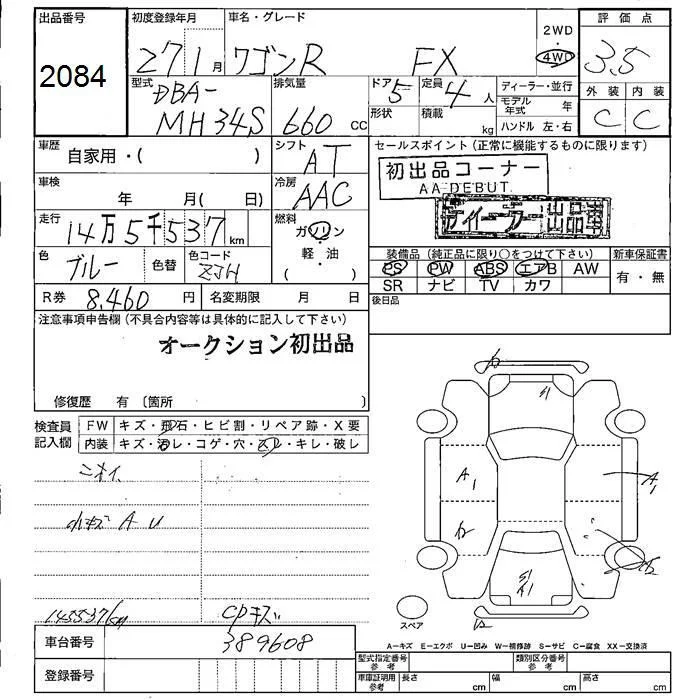 出品番号
2084
初度登録年月
27 1 月
車名・グレード
ワゴンR FX
2WD
4WD
評価点
3.5
外装 内装
C C
型式
DBA-
MH34S
排気量
660 cc
ドア
5
定員
4 人
形状
積載
kg
ディーラー・並行
モデル年式 年
ハンドル 左・右
車歴
自家用・( )
シフト
AT
セールスポイント(正常に機能するものに限ります)
初出品コーナー
AA DEBUT
ディーラー出品車
車検
年 月( 日)
冷房
AAC
走行
14万5千537km
燃料
ガソリン
軽・油
( )
色
ブルー
色替
色コード
ZJH
装備品(純正品に限り〇をつけて下さい)
PS PW ABS エアB AW
SR ナビ TV カワ
新車保証書
有・無
R券 8,460 円
名変期限 月 日
後日品
注意事項申告欄(不具合内容等は具体的に記入して下さい)
オークション初出品
修復歴 有〔箇所 〕
検査員記入欄
FW キズ・飛石・ヒビ割・リペア跡・X要
内装 キズ・汚レ・コゲ・穴・スレ・キレ・破レ
ニオイ
小キズ A U
145537km
CPキズ
A1
A1
A1
スペア
A-キズ E-エクボ U-凹み W-補修跡 S-サビ C-腐食 XX-交換済
車台番号
389608
登録番号
型式指定番号
参考
類別区分番号
参考
車庫証明用
参考
長さ cm
幅 cm
高さ cm